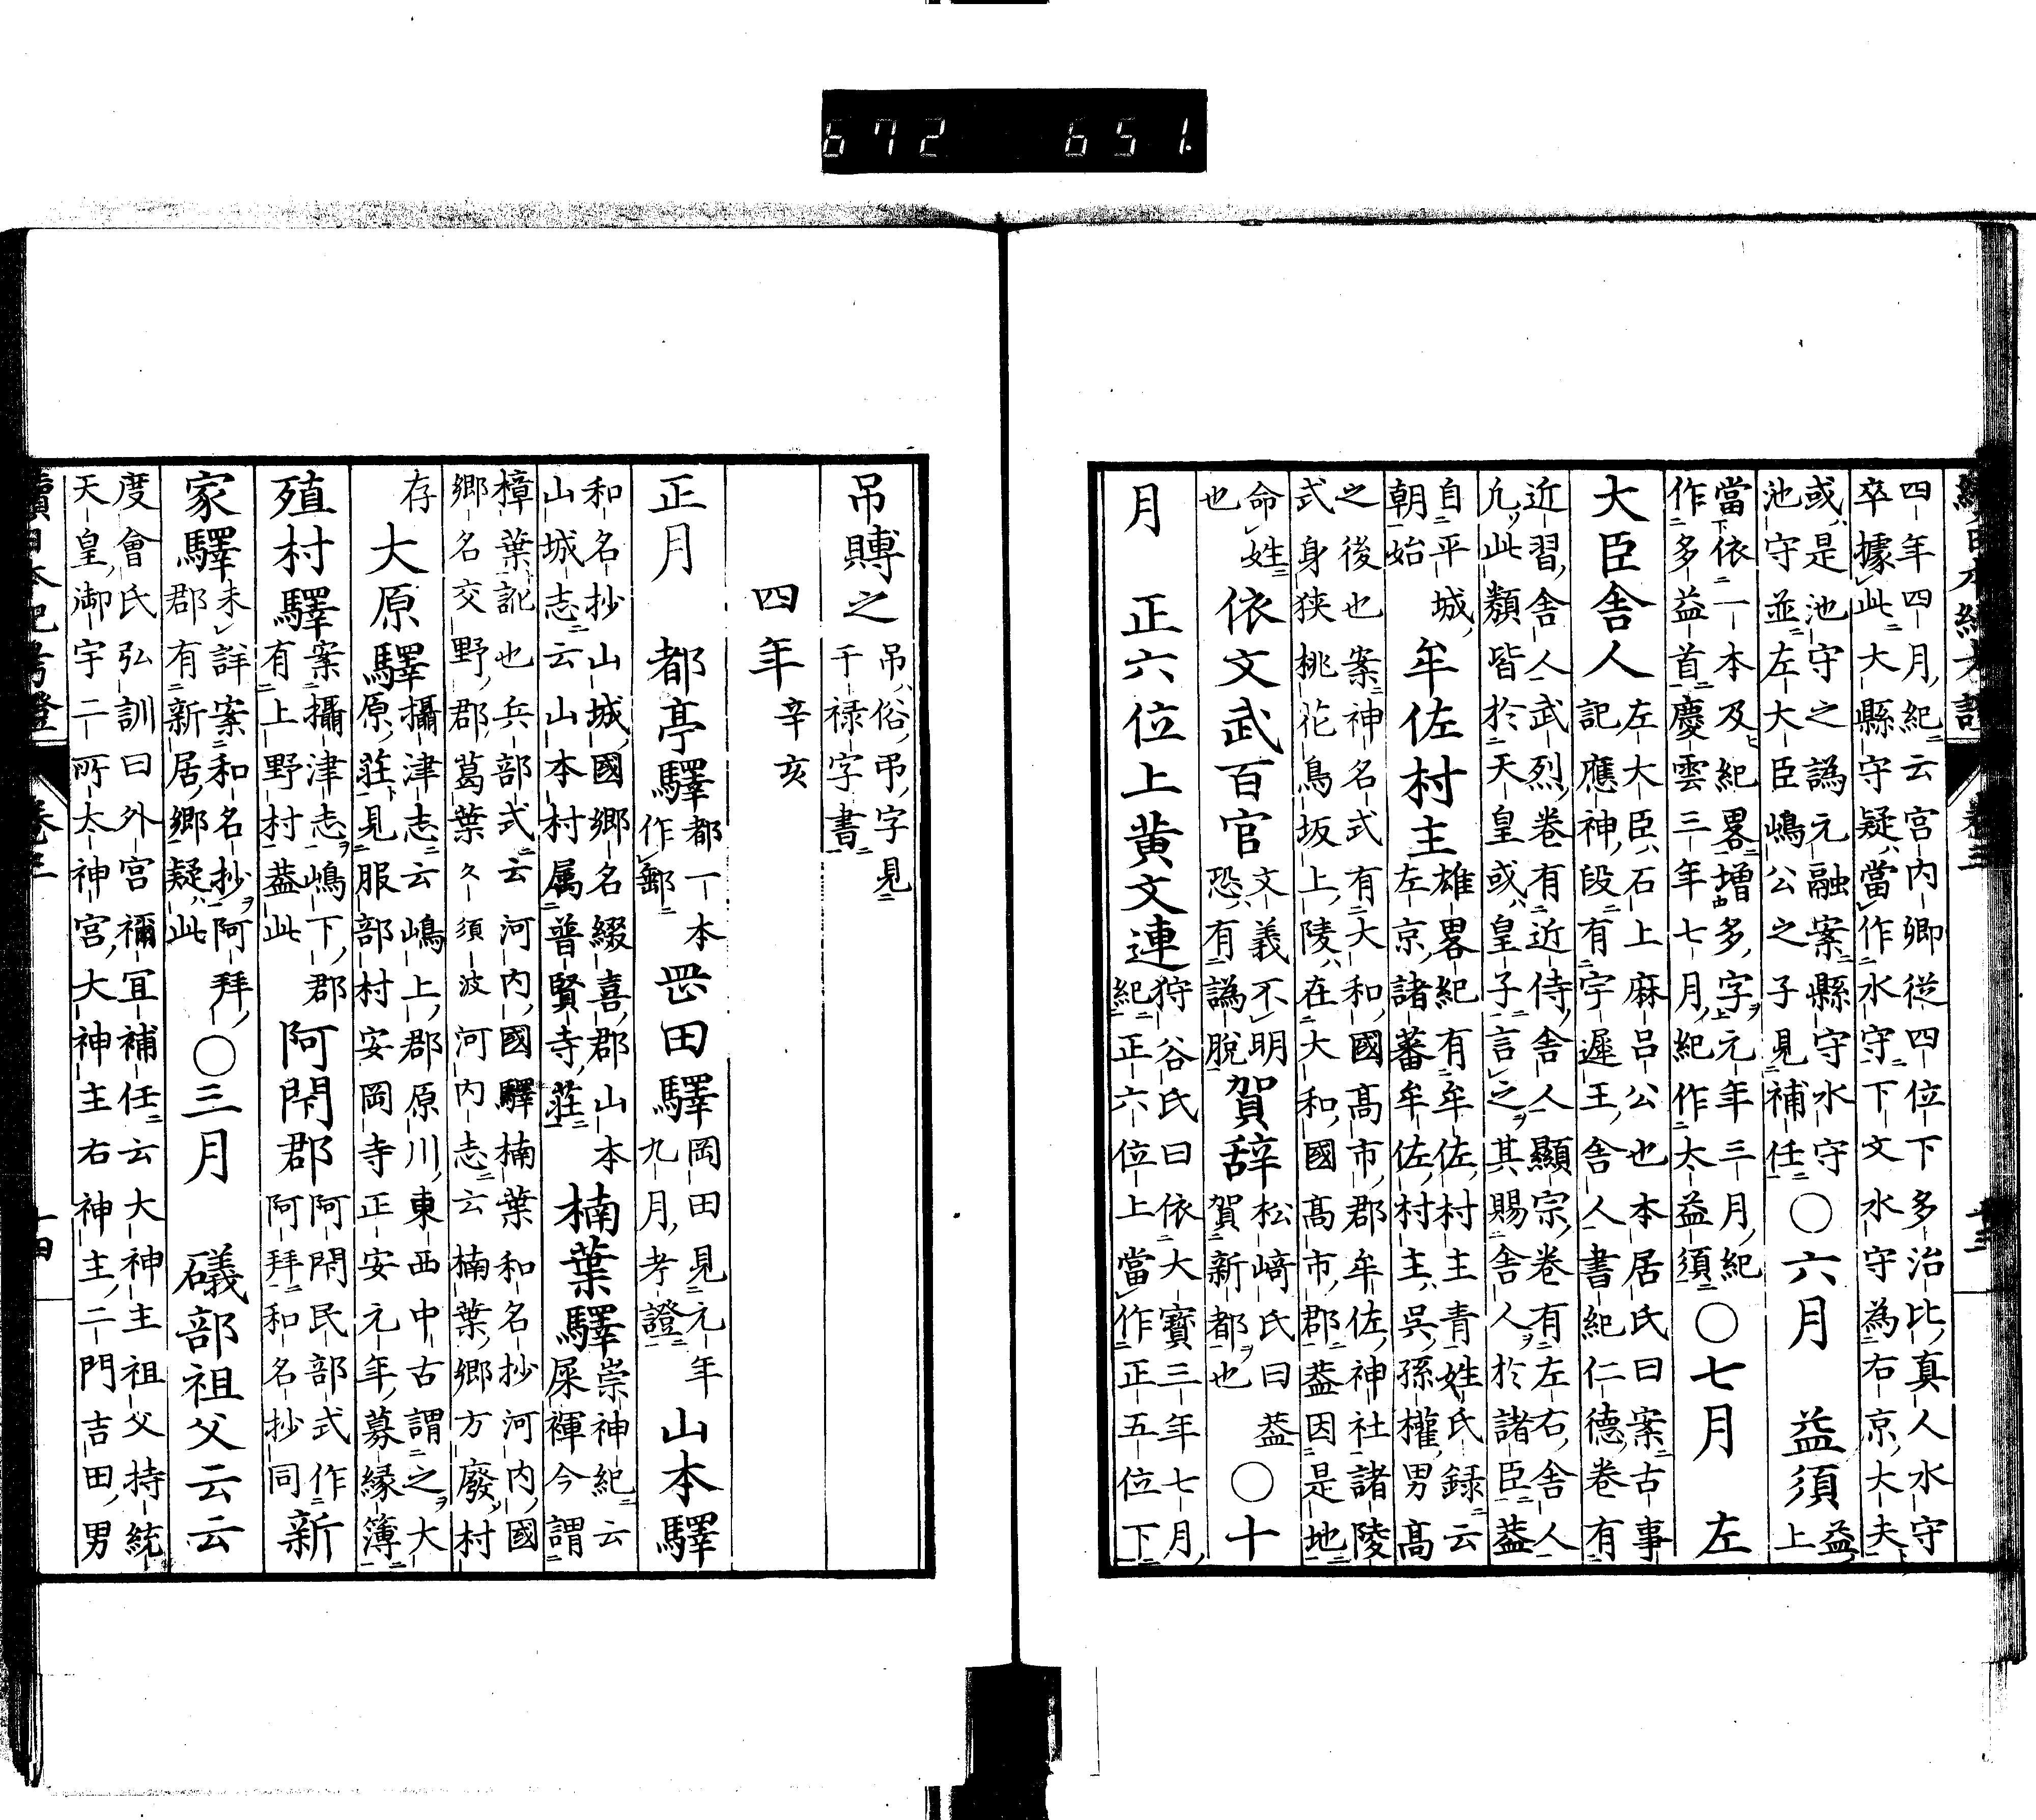 672 651.
四年四月紀云宮内卿從四位下多治比真人水守
卒據此大縣守疑當作水守下文水守為右京大夫
或是池守之譌元融案縣守水守
池守並左大臣嶋公之子見補任
○六月 益須
益
上
當依一本及紀畧増多字元年三月紀
作多益首慶雲三年七月紀作太益須
○七月 左
大臣舎人
左大臣石上麻呂公也本居氏曰案古事
記應神段有宇遲王舎人書紀仁德卷有
近習舎人武烈卷有近侍舎人顯宗卷有左右舎人
凢此類皆於天皇或皇子言之其賜舎人於諸臣葢
自平城
朝始
牟佐村主
雄畧紀有牟佐村主青姓氏録云
左京諸蕃牟佐村主呉孫權男高
之後也案神名式有大和國高市郡牟佐神社諸陵
式身狭桃花鳥坂上陵在大和國高市郡葢因是地
命姓
也
依文武百官
文義不明
恐有譌脱
賀辞
松﨑氏曰葢
賀新都也
○十
月 正六位上黄文連
狩谷氏曰依大寳三年七月
紀正六位上當作正五位下
吊賻之
吊俗弔字見
干禄字書
四年辛亥
正月 都亭驛
都一本
作郵
岊田驛
岡田見元年
九月考證
山本驛
和名抄山城國郷名綴喜郡山本
山城志云山本村属普賢寺荘
楠葉驛
崇神紀云
屎褌今謂
樟葉訛也兵部式云河内國驛楠葉和名抄河内國
郷名交野郡葛葉久須波河内志云楠葉郷方廢村
存
大原驛
攝津志云嶋上郡原川東西中古謂之大
原荘見服部村安岡寺正安元年募縁簿
殖村驛
案攝津志嶋下郡
有上野村葢此
阿閇郡
阿閇民部式作
阿拜和名抄同
新
家驛
未詳案和名抄阿拜
郡有新居郷疑此
○三月 礒部祖父云云
度會氏弘訓曰外宮禰宜補任云大神主祖父持統
天皇御宇二所太神宮大神主右神主二門吉田男
續日本紀考證 卷三 十四